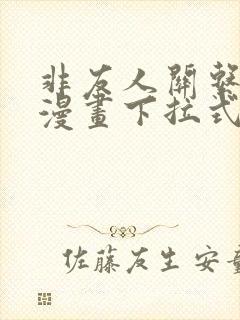 非友人關繫
漫畫下拉式
佐藤友生 安童